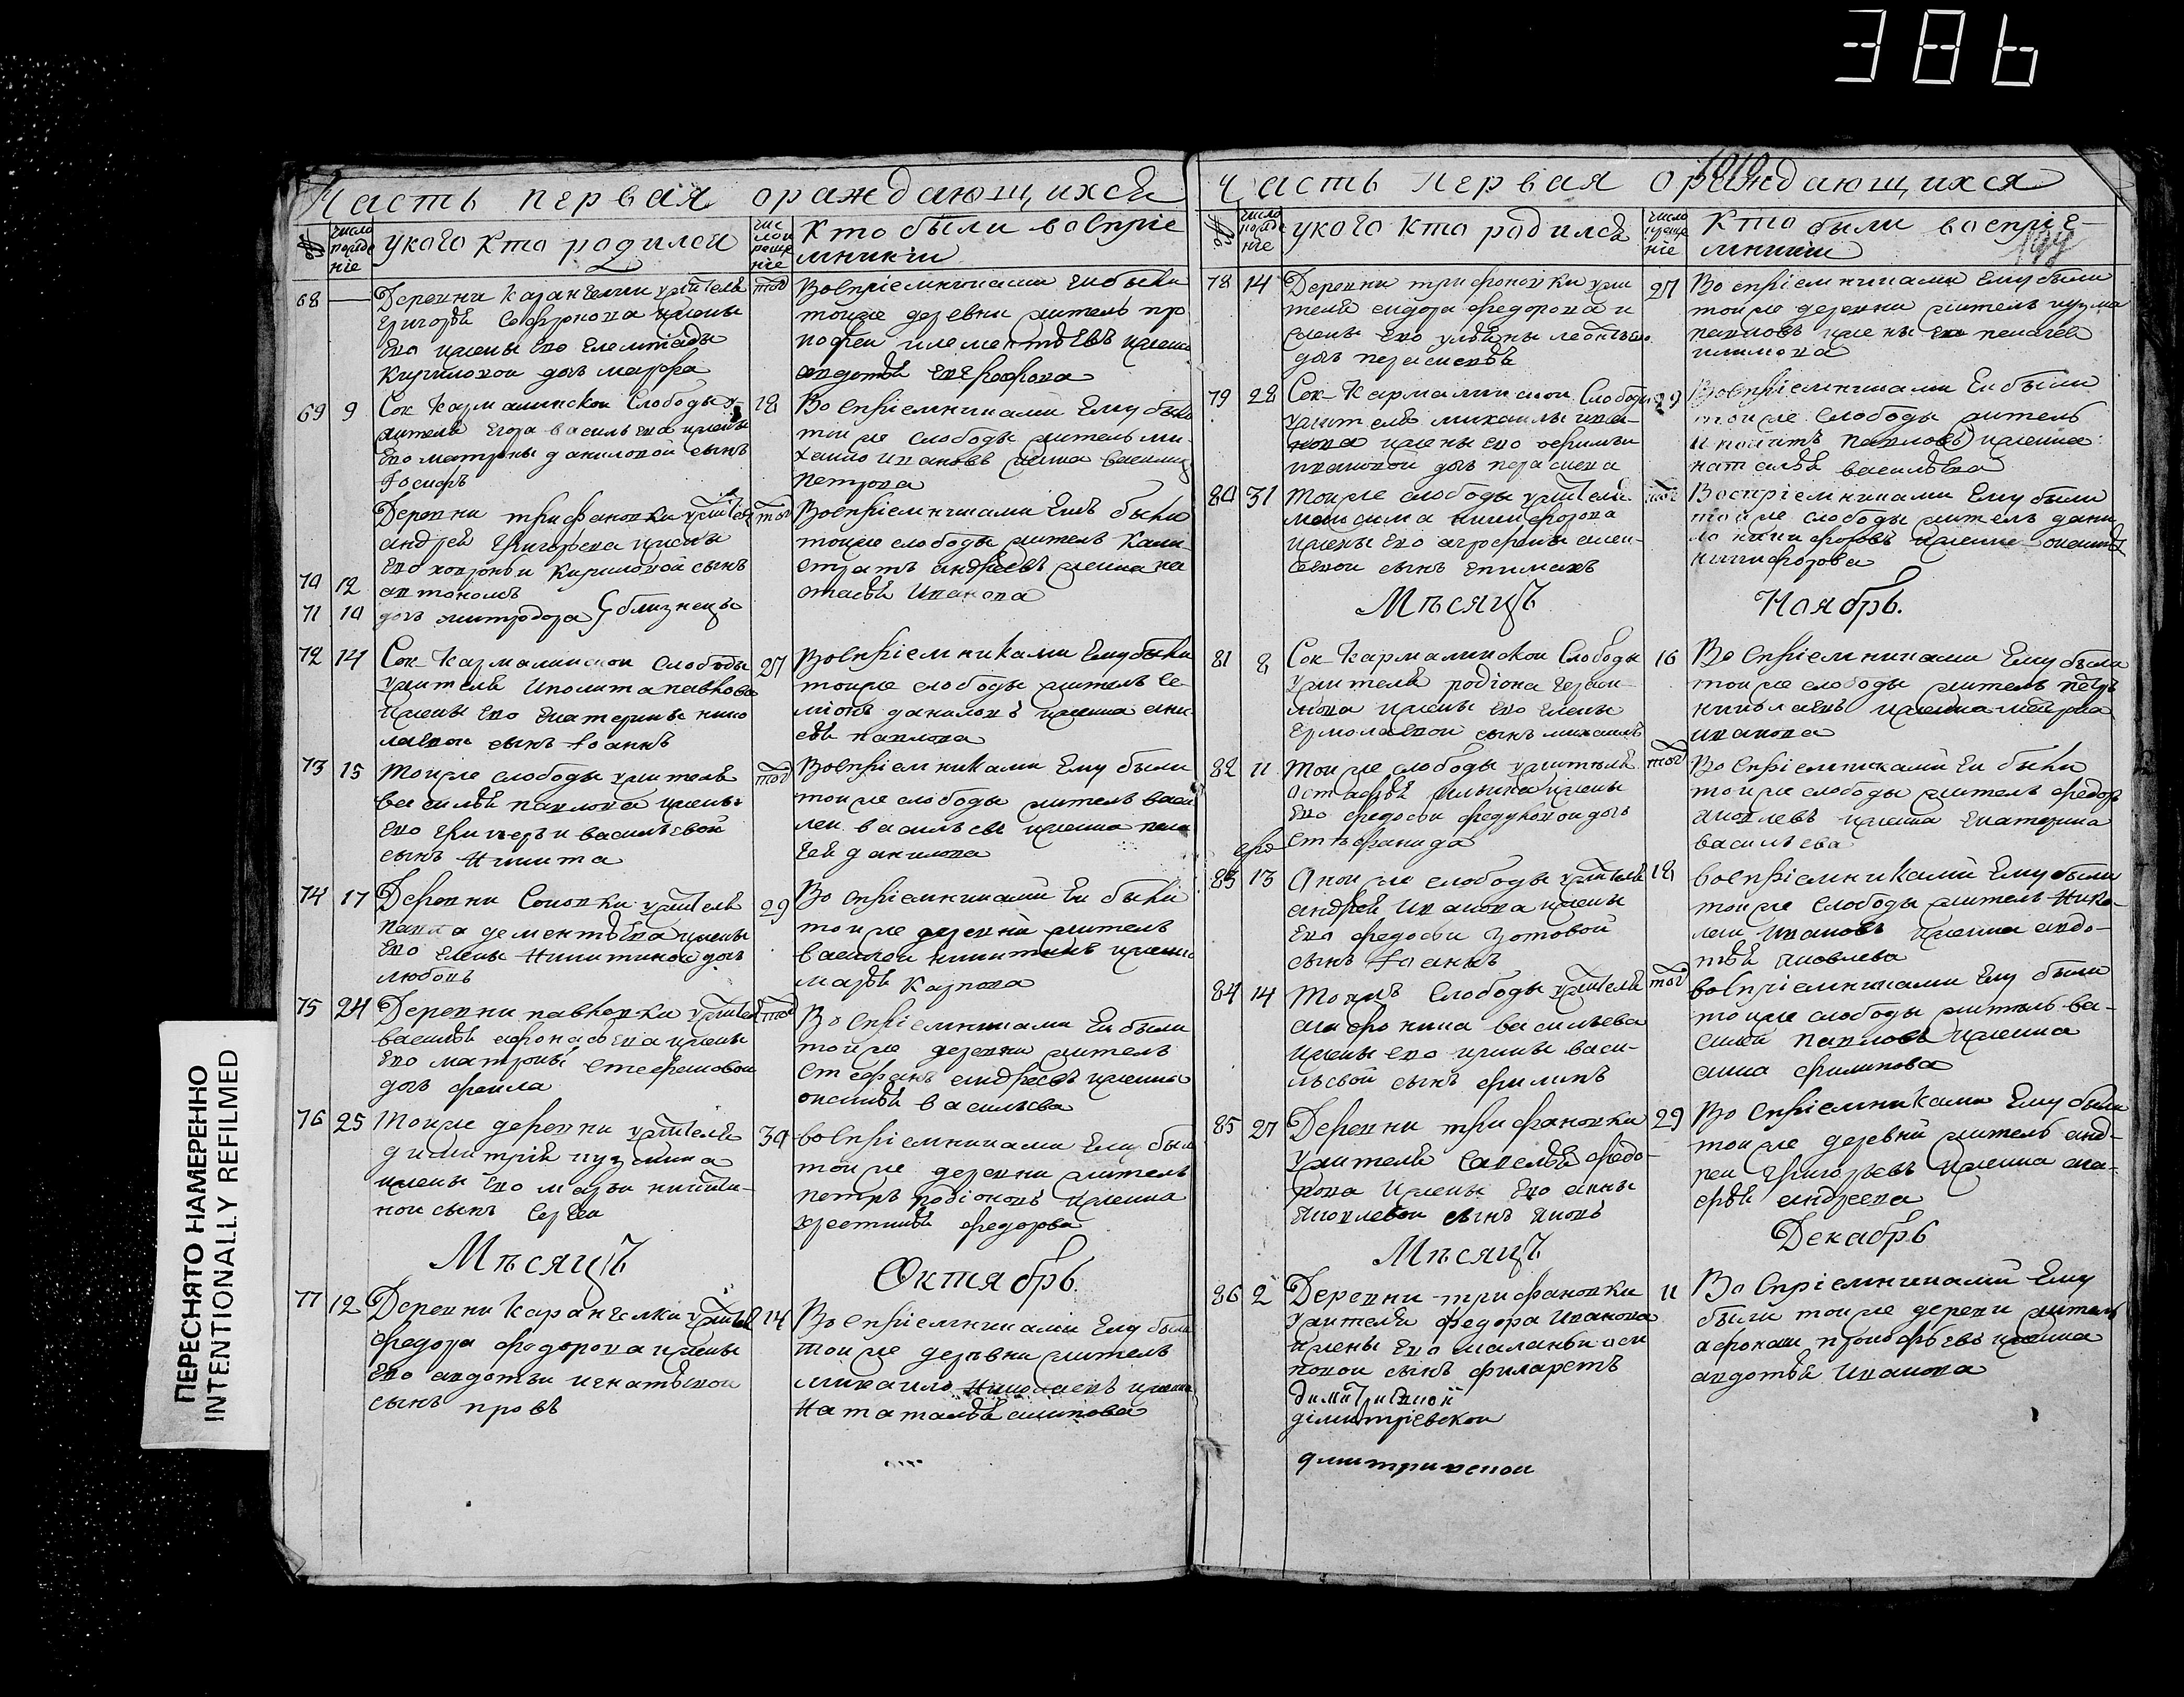 386
Часть первая ораждающихся
№
число
рожде
ніе
укого кто родился
чис
ло
креще
ніе
Кто были воспріе
мники
68
Деревни Карангелки жителя
Григорья Софронова и жены
его Елемпіады
Кириловой дочь марфа
той
Воспріемниками ей были
тоиже деревни житель про
кофеи
69 9 Сок Кармалинской Слободы
жителя Егора васильева ижены
его матроны даниловой сынъ
Іосифъ
18
Воспріемниками Ему были
тоиже слободы житель ми-
хаило ивановъ
петрова
Деревни трифановки жителя
андрея григорьева ижены
его Кириловой сынъ
70 12 автономъ
71 10 дочь митродора близнецы
той
Воспріемниками были
тоиже слободы житель Кали-
стратъ андреевъ ижена на
сталья Иванова
72 14 Сок Кармалинскои слободы
жителя Иполита павлова
ижены его Екатерины нико
лаевои сынъ Іоаннъ
27
Воспріемниками Ему были
тоиже слободы житель се-
міонъ даниловъ ижена ани-
сья павлова
73 15 тоиже слободы жителя
василья павлова ижены
его гликерьи васильевой
сынъ Никита
той
Воспріемниками Ему были
тоиже слободы житель васи
леи васильевъ ижена пела
гея данилова
74 17 Деревни Соновки жителя
павла дементьева ижены
его Елены Никитиной дочь
любовь
29
Воспріемниками Еи были
тоиже деревни житель
василеи никитинъ ижена
марья Карпова
75 24 Деревни павловки жителя
василья афонасьева ижены
его матроны стефановои
дочь фекла
той
Воспріемниками Еи были
тоиже деревни житель
Стефанъ андреевъ ижена
оксинья васильева
76 25 Тоиже деревни жителя
димитрія кузмина
ижены его марьи никити-
нои сынъ Сергеи
30
воспріемниками Ему были
тоиже деревни житель
петръ родіоновъ ижена
христинья федорова
Мѣсяцъ Октябрь
77 12 Деревни Карангелки жителя
федора федорова ижены
его авдотьи игнатьевои
сынъ провъ
14
Воспріемниками Ему были
тоиже деревни житель
михаило Николаевъ ижена
Наталья
Часть первая ораждающихся
№
число
рожде
ніе
укого кто родился
число
креще
ніе
Кто были воспріе-
мники
78 14 Деревни трифоновки жи
теля сидора федорова и
жены его ульяны леонтьево
дочь параскевья
27
Воспріемниками Ему были
тоиже деревни житель кузма
павловъ пелагея
79 28 Сок Кармалинскои Слободы
жителя михаилы ива-
нова ижены его
ивановой дочь параскева
29
Воспріемниками Еи были
тоиже слободы житель
иполитъ павловъ ижена
наталья васильева
80 31 тоиже слободы жителя
максима никифорова
ижены его агрофены алек-
сеевои сынъ епимахъ
той
Воспріемниками Ему были
тоиже слободы житель дани
ло никифоровъ
никифорова
Мѣсяцъ Ноябрь.
81 8 Сок Кармалинскои Слободы
жителя родіона гераси-
мова ижены его Елены
Ермолаевои сынъ михаилъ
16
Воспріемниками Ему были
тоиже слободы житель петръ
николаевъ ижена
иванова
82 11 тоиже слободы жителя
астафья ильина ижены
его федосьи дочь
стефанида
той
Воспріемниками Еи были
тоиже слободы житель федоръ
яковлевъ ижена Екатерина
васильева
83 13 Тоиже слободы жителя
андрея Иванова ижены
его федосьи зотовой
сынъ Іоаннъ
18
воспріемниками Ему были
тоиже слободы житель Нико-
лаи ивановъ ижена авдо-
тья яковлева
84 14 Тоижъ Слободы жителя
агафоника васильева
ижены его ирины васи-
льевой сынъ филипъ
той
воспріемниками Ему были
тоиже слободы житель ва-
силеи павловъ ижена
анна филипова
85 27 Деревни трифановки
жителя савелья федо-
рова ижены его анны
Яковлевои сынъ Яковъ
29
Воспріемниками Ему были
тоиже деревни житель анд-
реи григорьевъ ижена ага-
фья андреева
Мѣсяцъ Декабрь
86 2 Деревни трифановки
жителя федора Иванова
ижены его маланьи оси
повои сынъ филаретъ
11
Воспріемниками Ему
были тоиже деревни житель
афонаси прокофьевъ ижена
авдотья Иванова
димитриевной
дімитріевскои
ПЕРЕСНЯТО НАМЕРЕННО
INTENTIONALLY REFILMED